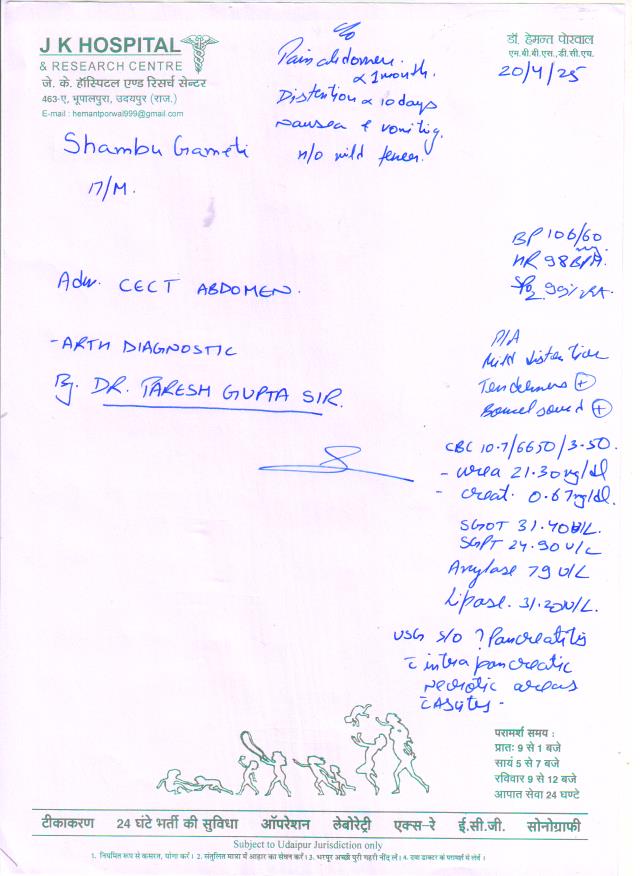 J K HOSPITAL
& RESEARCH CENTRE
जे. के. हॉस्पिटल एण्ड रिसर्च सेन्टर
463-ए, भूपालपुरा, उदयपुर (राज.)
E-mail : hemantporwal999@gmail.com
डॉ. हेमन्त पोरवाल
एम.बी.बी.एस., डी.सी.एच.
20/4/25
c/o
Pain abdomen.
x 1 month.
Distention x 10 days
nausea & vomiting.
H/O mild fever.
Shambu Gameti
17/M.
BP 106/60
HR 98 BPM.
SpO2 99% RA.
Adv. CECT ABDOMEN.
P/A
Mild distention
Tenderness +
Bowel sound +
- ARTH DIAGNOSTIC
By. DR. PARESH GUPTA SIR.
CBC 10.7/6650/3.50.
- urea 21.30 mg/dl
- creat. 0.67 mg/dl.
SGOT 31.40 U/L.
SGPT 24.90 U/L
Amylase 79 U/L
Lipase. 31.20 U/L.
USG S/O ? Pancreatitis
c̄ intra pancreatic
necrotic areas
c̄ Ascites -
परामर्श समय :
प्रातः 9 से 1 बजे
सायं 5 से 7 बजे
रविवार 9 से 12 बजे
आपात सेवा 24 घण्टे
टीकाकरण 24 घंटे भर्ती की सुविधा ऑपरेशन लेबोरेट्री एक्स-रे ई.सी.जी. सोनोग्राफी
Subject to Udaipur Jurisdiction only
1. नियमित रूप से कसरत, योगा करें। 2. संतुलित मात्रा में आहार का सेवन करें। 3. भरपूर अच्छी पुरी गहरी नींद लें। 4. दवा डाक्टर के परामर्श से लेवें।